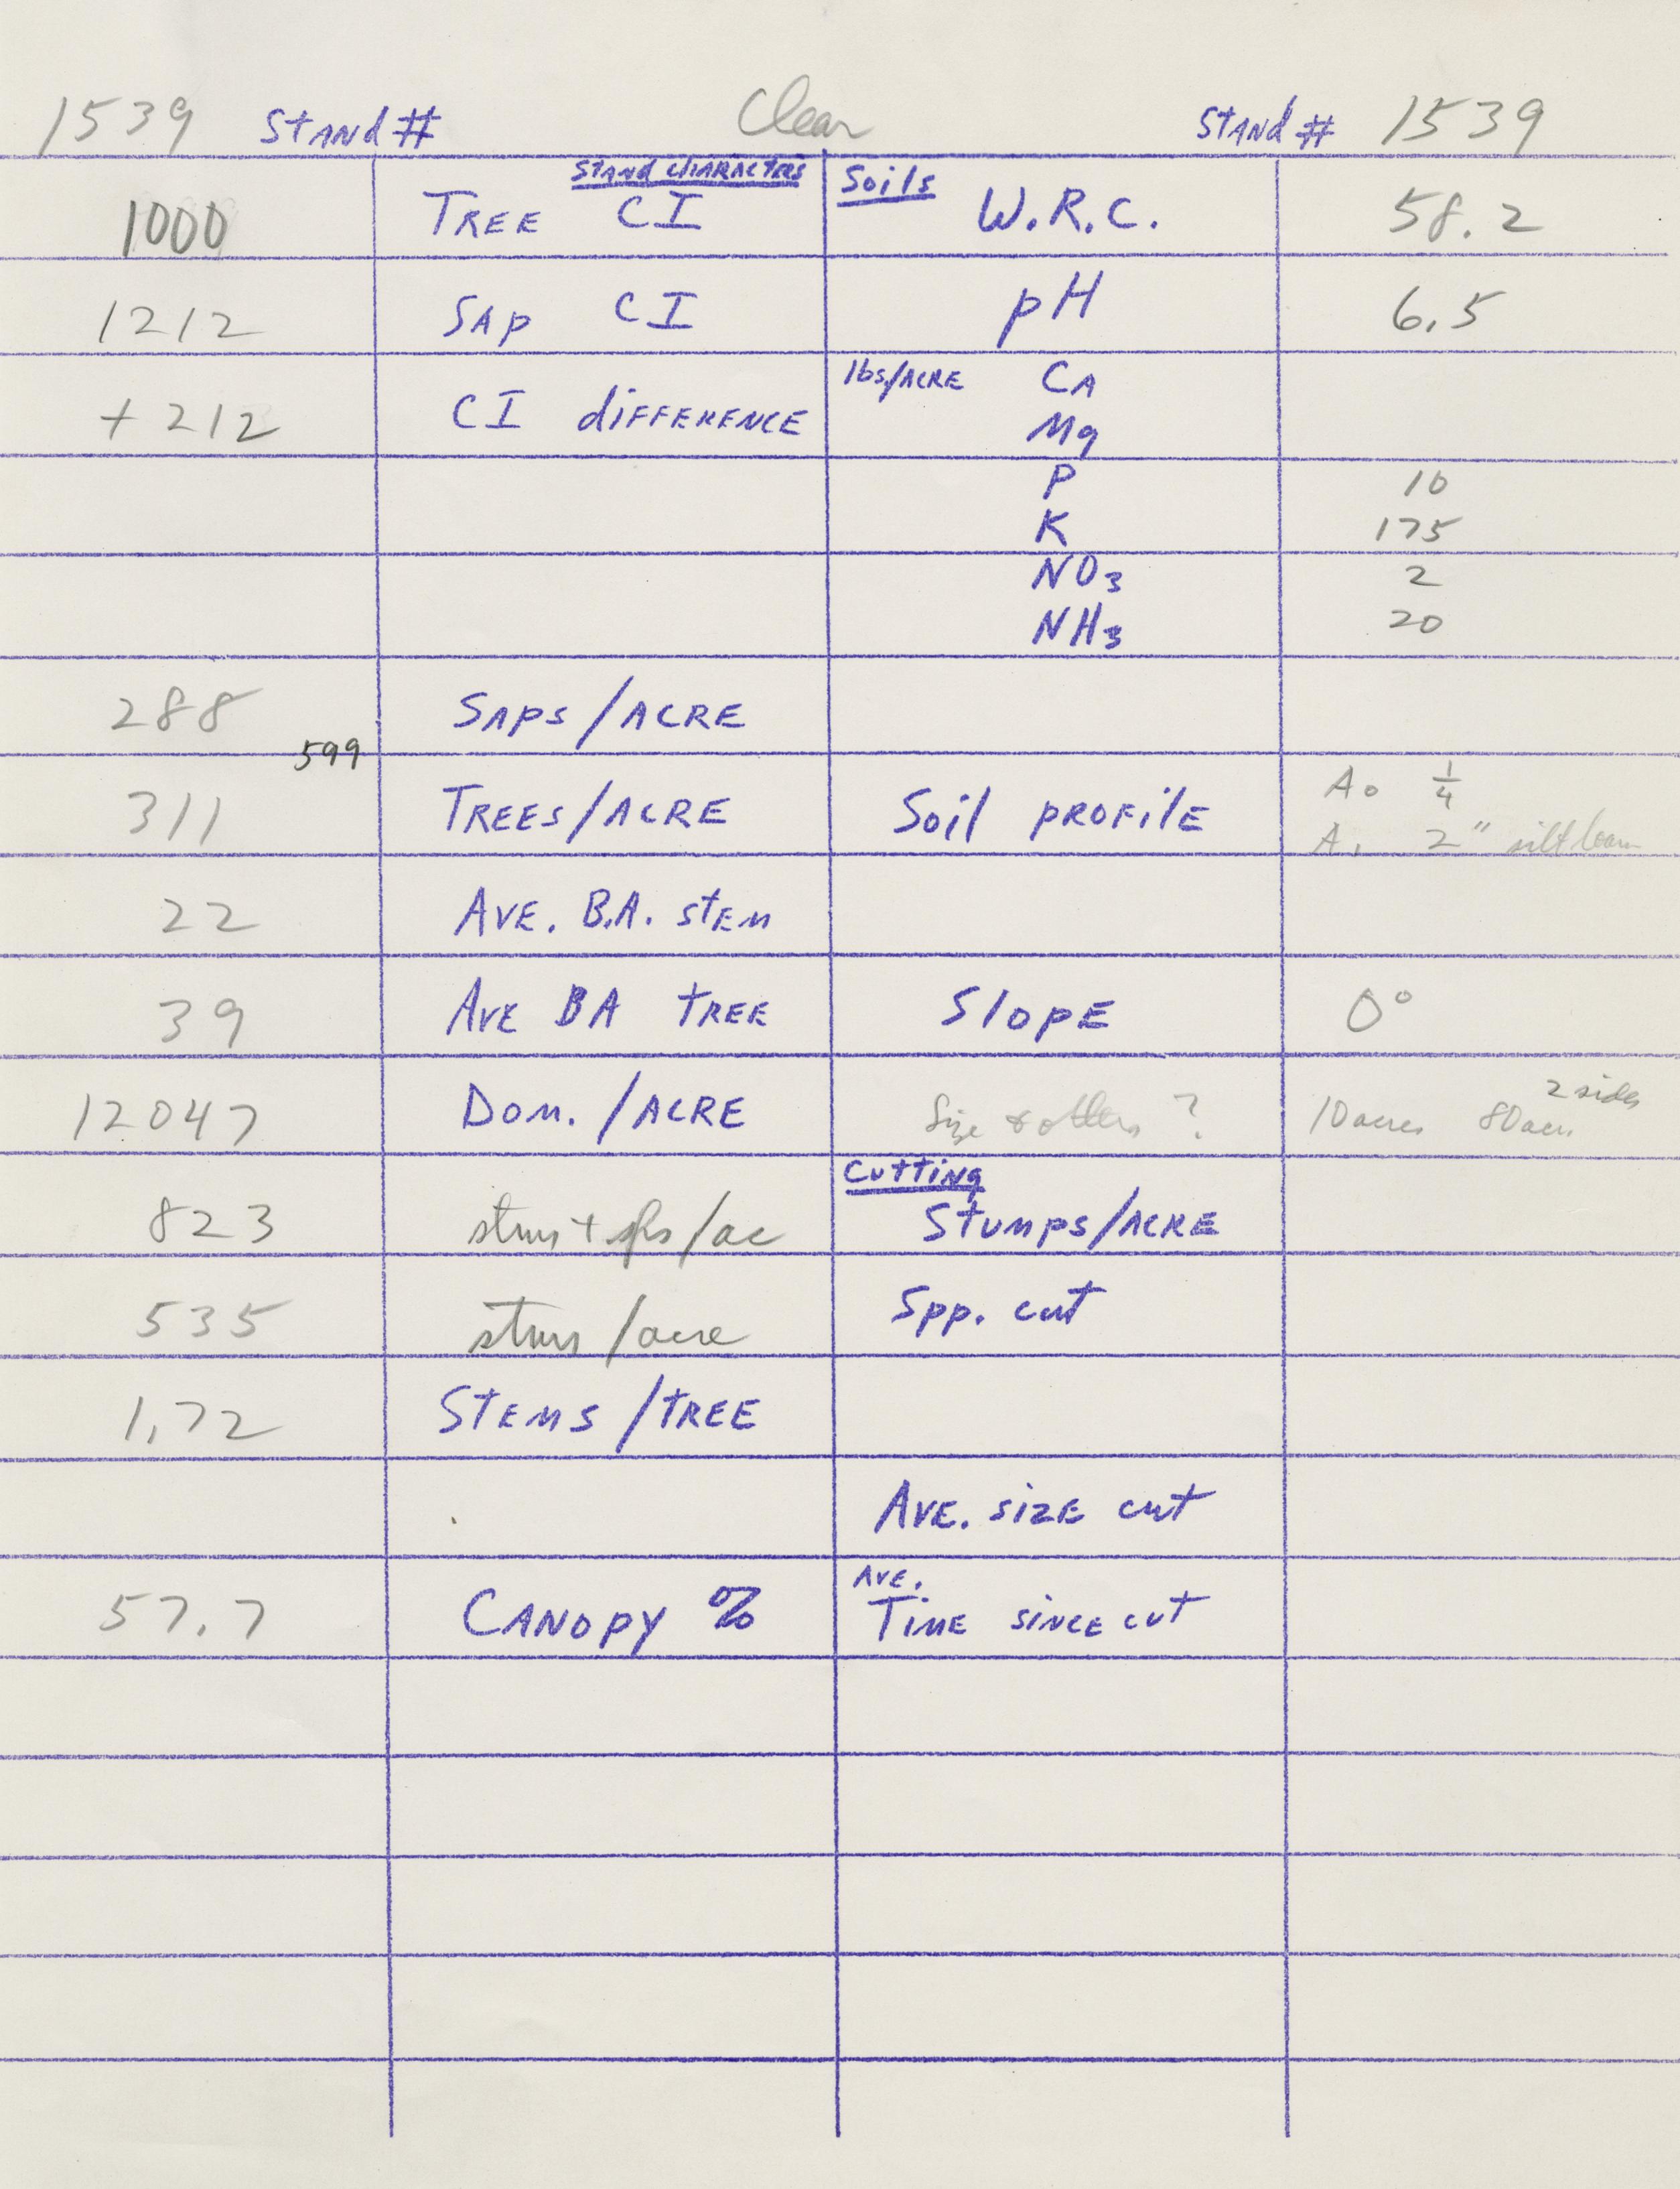 1539 Stand # Clear Stand # 1539
Stand Characters Soils
1000 Tree CI W.R.C. 58.2
1212 Sap CI pH 6.5
+212 CI difference lbs/Acre Ca
Mg
P 10
K 175
NO3 2
NH3 20
288 Saps/Acre
599
311 Trees/Acre Soil profile A0 1/4
A1 2" silt loam
22 Ave. B.A. stem
39 Ave BA tree Slope 0°
12047 Dom./Acre Size & others ? 10 acres 80 acres 2 sides
Cutting
823 stms + sps/ac Stumps/Acre
535 stms/acre Spp. cut
1.72 Stems/tree
Ave. size cut
57.7 Canopy % Ave. Time since cut